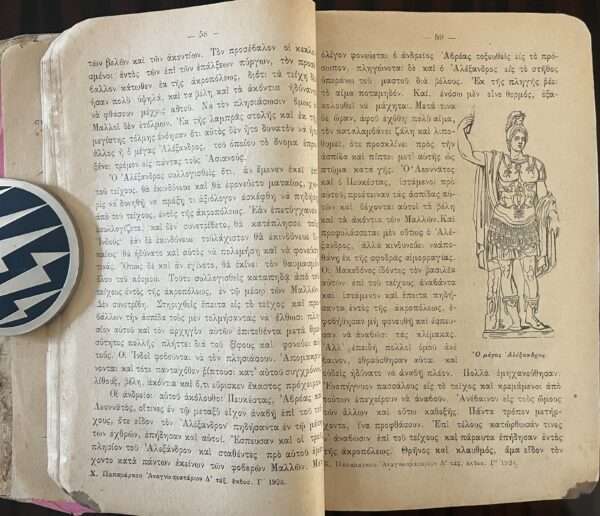 — 58 —
τῶν βελῶν καὶ τῶν ἀκοντίων. Τὸν προσέβαλον οἱ κεκλει-
σμένοι ἐντὸς τῶν ἐπὶ τῶν ἐπάλξεων πύργων, τὸν προσέ-
βαλλον κάτωθεν ἐκ τῆς ἀκροπόλεως, διότι τὰ τείχη δὲν
ἦσαν πολὺ ὑψηλά, καὶ τὰ βέλη καὶ τὰ ἀκόντια ἠδύναντο
νὰ φθάσουν μέχρις αὐτοῦ. Νὰ τὸν πλησιάσωσιν ὅμως οἱ
Μαλλοὶ δὲν ἐτόλμων. Ἐκ τῆς λαμπρᾶς στολῆς καὶ ἐκ τῆς
μεγίστης τόλμης ἐνόησαν ὅτι αὐτὸς δὲν ἦτο δυνατὸν νὰ ἦτο
ἄλλος ἢ ὁ μέγας Ἀλέξανδρος, τοῦ ὁποίου τὸ ὄνομα ἐπροξέ-
ξένει τρόμον εἰς πάντας τοὺς Ἀσιανούς.
Ὁ Ἀλέξανδρος συλλογισθεὶς ὅτι, ἂν ἔμενεν ἐκεῖ ἐπὶ
τοῦ τείχους, θὰ ἐκινδύνευε καὶ θὰ ἐφονεύετο ματαίως, χω-
ρὶς νὰ δυνηθῇ νὰ πράξῃ τι ἀξιόλογον ἐσκέφθη νὰ πηδήσῃ
ἀπὸ τοῦ τείχους, ἐντὸς τῆς ἀκροπόλεως. Ἐὰν ἐπετύγχανεν,
ἐσυλλογίζετο, καὶ δὲν συνετρίβετο, θὰ κατέπλησσε τοὺς
Ἰνδούς· ἐὰν δὲ ἐκινδύνευε τοὐλάχιστον θὰ ἐκινδύνευε
καίως· θὰ ἠδύνατο καὶ αὐτὸς νὰ πολεμήσῃ καὶ νὰ φονεύσῃ
τινάς. Ὅπως δὲ καὶ ἂν ἐγίνετο, θὰ ἐκίνει τὸν θαυμασμὸν
ὅλου τοῦ κόσμου. Τοῦτο συλλογισθεὶς καταπηδᾷ ἀπὸ τοῦ
τείχους ἐντὸς τῆς ἀκροπόλεως, ἐν τῷ μέσῳ τῶν Μαλλῶν.
Δὲν συνετρίβη. Στηριχθεὶς ἔπειτα εἰς τὸ τεῖχος καὶ προ-
βάλλων τὴν ἀσπίδα τοὺς μὲν τολμήσαντας νὰ ἔλθωσι πλη-
σίον αὐτοῦ καὶ τὸν ἀρχηγὸν αὐτῶν ἐπιτεθέντα μετὰ θρα-
σύτητος πολλῆς πλήττει διὰ τοῦ ξίφους καὶ φονεύει αὐ-
τούς. Οἱ Ἰνδοὶ φοβοῦνται νὰ τὸν πλησιάσουν. Ἀπομακρύ-
νονται καὶ τότε πανταχόθεν ῥίπτουσι κατ' αὐτοῦ συγχρόνως
λίθους, βέλη, ἀκόντια καὶ ὅ,τι εὕρισκεν ἕκαστος πρόχειρον.
Οἱ ἀνδρεῖοι αὐτοῦ ἀκόλουθοι Πευκέστας, Ἀβρέας καὶ
Λεοννάτος, οἵτινες ἐν τῷ μεταξὺ εἶχον ἀναβῆ ἐπὶ τοῦ τεί-
χους, ὅτε εἶδον τὸν Ἀλέξανδρον πηδήσαντα ἐν τῷ μέσῳ
τῶν ἐχθρῶν, ἐπήδησαν καὶ αὐτοί. Ἔσπευσαν καὶ οἱ τρεῖς
πλησίον τοῦ Ἀλεξάνδρου καὶ σταθέντες πρὸ αὐτοῦ ἐμά-
χοντο κατὰ πάντων ἐκείνων τῶν φοβερῶν Μαλλῶν. Μετ'
Χ. Παπαμάρκου Ἀναγνωσματάριον Δ' τάξ. ἔκδοσ. Γ' 1924.
— 59 —
ὀλίγον φονεύεται ὁ ἀνδρεῖος Ἀβρέας τοξευθεὶς εἰς τὸ πρό-
σωπον, πληγώνεται δὲ καὶ ὁ Ἀλέξανδρος εἰς τὸ στῆθος
ὑπεράνω τοῦ μαστοῦ διὰ βέλους. Ἐκ τῆς πληγῆς ῥέει
τὸ αἷμα ποταμηδόν. Καί, ἐνόσῳ μὲν εἶνε θερμός, ἐξα-
κολουθεῖ νὰ μάχηται. Μετά τινα
δὲ ὥραν, ἀφοῦ ἐχύθη πολὺ αἷμα,
τὸν καταλαμβάνει ζάλη καὶ λιπο-
θυμεῖ, ὅτε προσκλίνει πρὸς τὴν
ἀσπίδα καὶ πίπτει μετ' αὐτῆς ὡς
πτῶμα κατὰ γῆς. Ὁ Λεοννάτος
καὶ ὁ Πευκέστας, ἱστάμενοι πρὸ
αὐτοῦ, προέτειναν τὰς ἀσπίδας αὐ-
τῶν καὶ δέχονται αὐτοὶ τὰ βέλη
καὶ τὰ ἀκόντια τῶν Μαλλῶν. Καὶ
προφυλάσσεται μὲν οὕτως ὁ Ἀλέ-
ξανδρος, ἀλλὰ κινδυνεύει ν' ἀπο-
θάνῃ ἐκ τῆς σφοδρᾶς αἱμορραγίας.
Οἱ Μακεδόνες ἰδόντες τὸν βασιλέα
αὐτῶν ἐπὶ τοῦ τείχους ἀναβάντα
καὶ ἱστάμενον καὶ ἔπειτα πηδή-
σαντα ἐντὸς τῆς ἀκροπόλεως, ἐ-
φοβήθησαν μὴ φονευθῇ καὶ ἔσπευ-
σαν νὰ ἀναβῶσι τὰς κλίμακας.
Ἀλλ' ἐπειδὴ πολλοὶ ὁμοῦ ἀνέ-
βαινον, ἐθραύσθησαν αὗται καὶ
οὐδεὶς ἠδύνατο νὰ ἀναβῇ πλέον. Πολλὰ ἐμηχανεύθησαν·
Ἐνεπήγνυον πασσάλους εἰς τὸ τεῖχος καὶ κρεμάμενοι ἀπὸ
τούτων ἐπεχείρουν νὰ ἀναβοῦν. Ἀνέβαινον εἰς τοὺς ὤμους
τῶν ἄλλων καὶ οὕτω καθεξῆς. Πάντα τρόπον μετῆρ-
χοντο, ἵνα προφθάσουν. Ἐπὶ τέλους κατώρθωσάν τινες
νὰ ἀναβῶσιν ἐπὶ τοῦ τείχους καὶ πάραυτα ἐπήδησαν ἐντὸς
τῆς ἀκροπόλεως. Θρῆνος καὶ κλαυθμός, ἅμα εἶδον τὸν
Ὁ μέγας Ἀλέξανδρος
Χ. Παπαμάρκου Ἀναγνωσματάριον Δ' τάξ. ἔκδοσ. Γ' 1924.